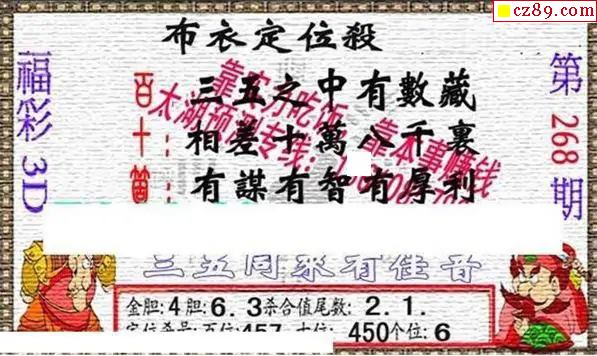 cz89.com
布衣定位殺
福彩3D
第268期
百十箇
三五之中有數藏
相差十萬八千裏
有謀有智有厚利
三五同來有佳音
金胆:4胆:6.3杀合值尾数:2.1.
定位杀号:百位457 十位:450个位:6